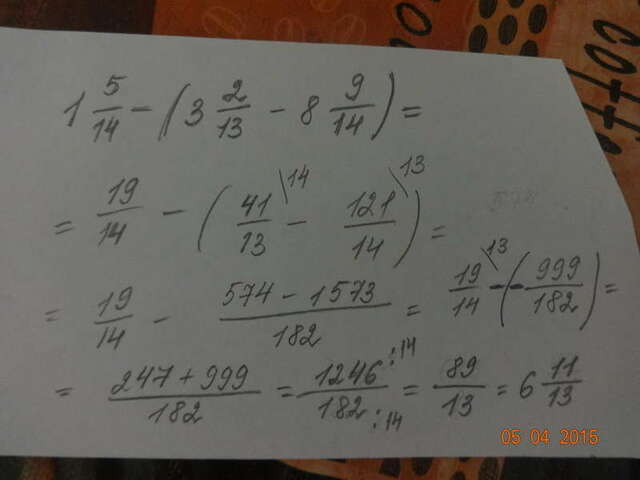 1 5/14 - (3 2/13 - 8 9/14) =
= 19/14 - (41/13 \14 - 121/14 \13) =
= 19/14 - 574 - 1573/182 = 19/14 \13 - (- 999/182) =
= 247 + 999/182 = 1246 :14/182 :14 = 89/13 = 6 11/13
05 04 2015